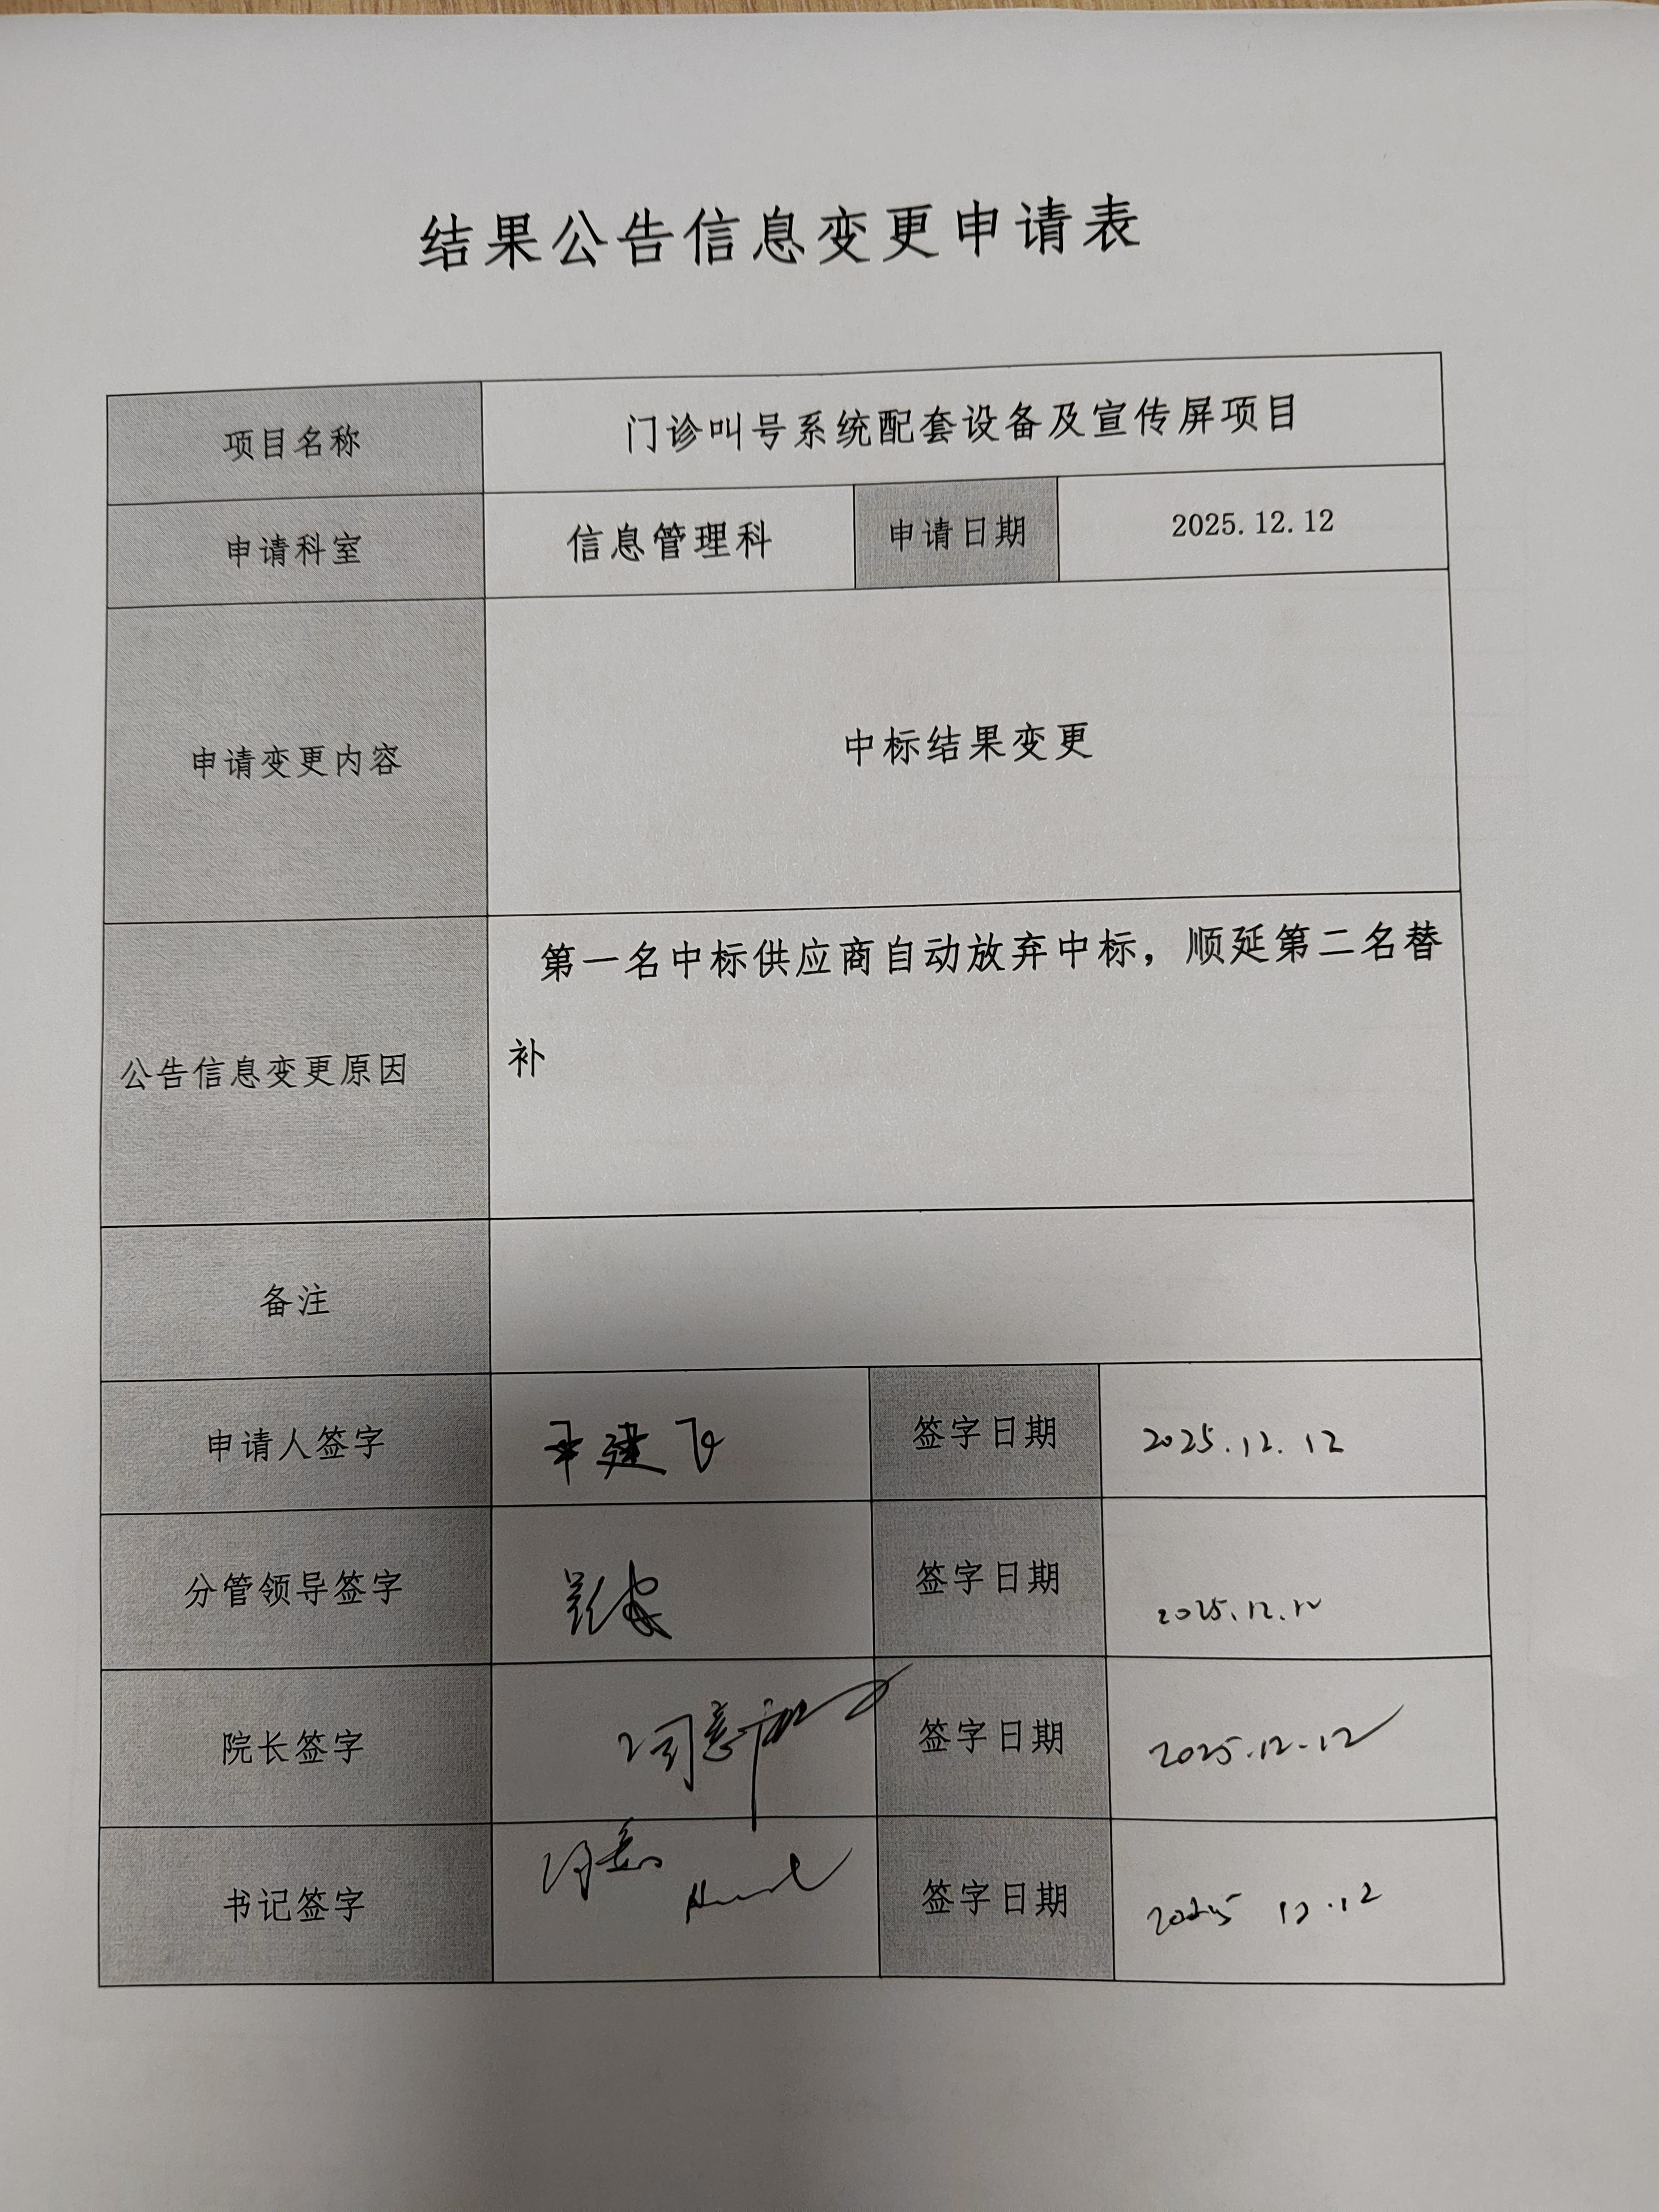 结果公告信息变更申请表
项目名称 门诊叫号系统配套设备及宣传屏项目
申请科室 信息管理科 申请日期 2025.12.12
申请变更内容 中标结果变更
公告信息变更原因 第一名中标供应商自动放弃中标，顺延第二名替
补
备注
申请人签字 建飞 签字日期 2025.12.12
分管领导签字 签字日期 2025.12.12
院长签字 同意 签字日期 2025.12.12
书记签字 同意 签字日期 2025 12.12